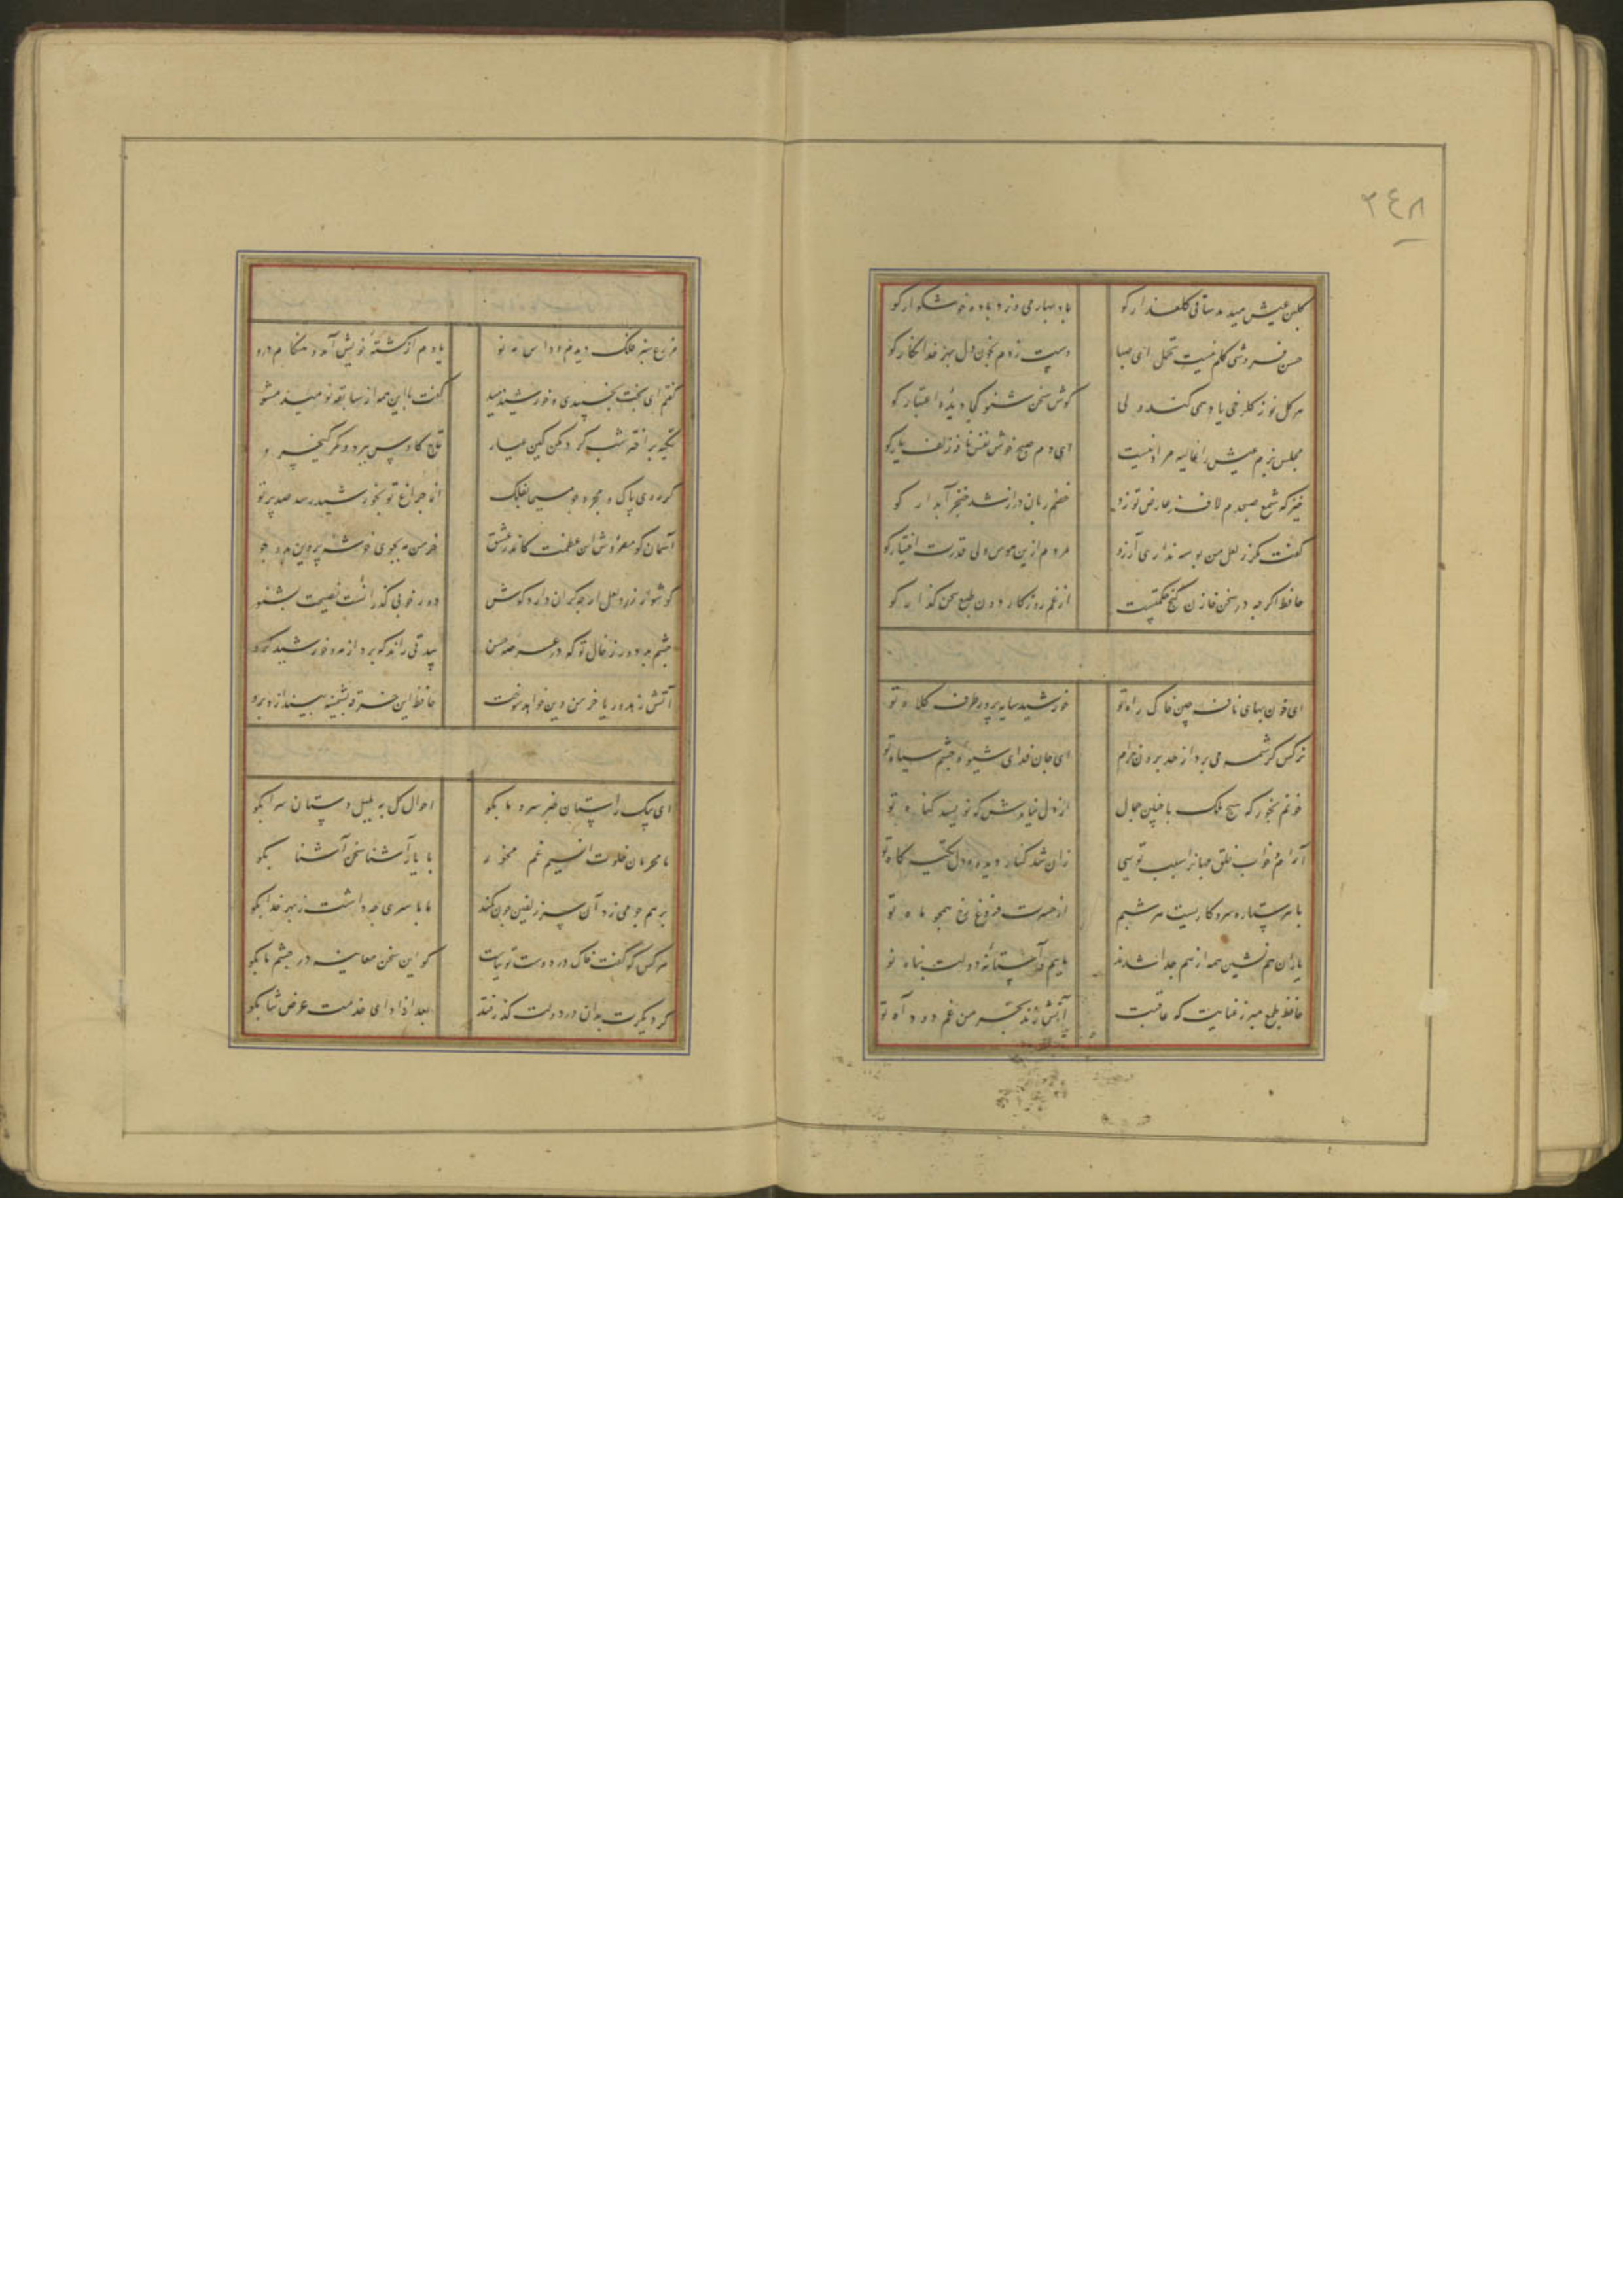 ٢٤٨
کلبن عیش میدمد ساقی کلعذار کو
باد بهار می وزد باده خوشکوار کو
حسن فروشی کلم نیست تحمل ای صبا
دست زدم بخون دل بهر خدا نکار کو
هر کل نو ز کلرخی یاد همی کند ولی
کوش سخن شنو کجا دیده اعتبار کو
مجلس بزم عیش را غالیه مراد نیست
ای دم صبح خوش نفس نافه زلف یار کو
شمع صبحدم لاف ز عارض تو زد
خصم زبان دراز شد خنجر آبدار کو
کفت مکر ز لعل من بوسه نداری آرزو
مردم ازین هوس ولی قدرت اختیار کو
حافظ اکر چه در سخن خازن کنج حکمتست
از غم روزکار دون طبع سخن کذار کو
ای خون بهای نافه چین خاک راه تو
خورشید سایه پرور طرف کلاه تو
نرکس کرشمه می برد از حد برون خرام
ای جان فدای شیوه چشم سیاه تو
خونم بخور که هیچ ملک با چنین جمال
از دل نیایدش که نویسد کناه تو
آرام خواب خلق جهانرا سبب تویی
زان شد کنار دیده و دل تکیه کاه تو
با هر ستاره سر و کاریست هر شبم
از حسرت فروغ رخ همچو ماه تو
یاران هم نشین همه از هم جدا شدند
ماییم و آستانه دولت پناه تو
حافظ طمع مبر ز عنایت که عاقبت
آتش زند بخرمن غم دود آه تو
مزرع سبز فلک دیدم و داس مه نو
یادم از کشته خویش آمد و هنکام درو
کفتم ای بخت بخسپیدی و خورشید دمید
کفت با این همه از سابقه نومید مشو
تکیه بر اختر شب کرد مکن کین عیار
تاج کاوس ببرد و کمر کیخسرو
کر روی پاک و مجرد چو مسیحا بفلک
از چراغ تو بخورشید رسد صد پرتو
آسمان کو مفروش این عظمت کاندر عشق
خرمن مه بجوی خوشه پروین بدو جو
کوشوار زر و لعل ار چه کران دارد کوش
دور خوبی کذرانست نصیحت بشنو
چشم بد دور ز خال تو که در عرصه حسن
بیدقی راند که برد از مه و خورشید کرو
آتش زهد و ریا خرمن دین خواهد سوخت
حافظ این خرقه پشمینه بینداز و برو
ای پیک راستان خبر سرو ما بکو
احوال کل به بلبل دستان سرا بکو
ما محرمان خلوت انسیم غم مخور
با یار آشنا سخن آشنا بکو
بر هم چو می زد آن سر زلفین چون کمند
با ما سری چه داشت ز بهر خدا بکو
هر کس که کفت خاک در دوست توتیاست
کو این سخن معاینه در چشم ما بکو
کر دیکرت بدان در دولت کذر فتد
بعد از ادای خدمت عرض ثنا بکو